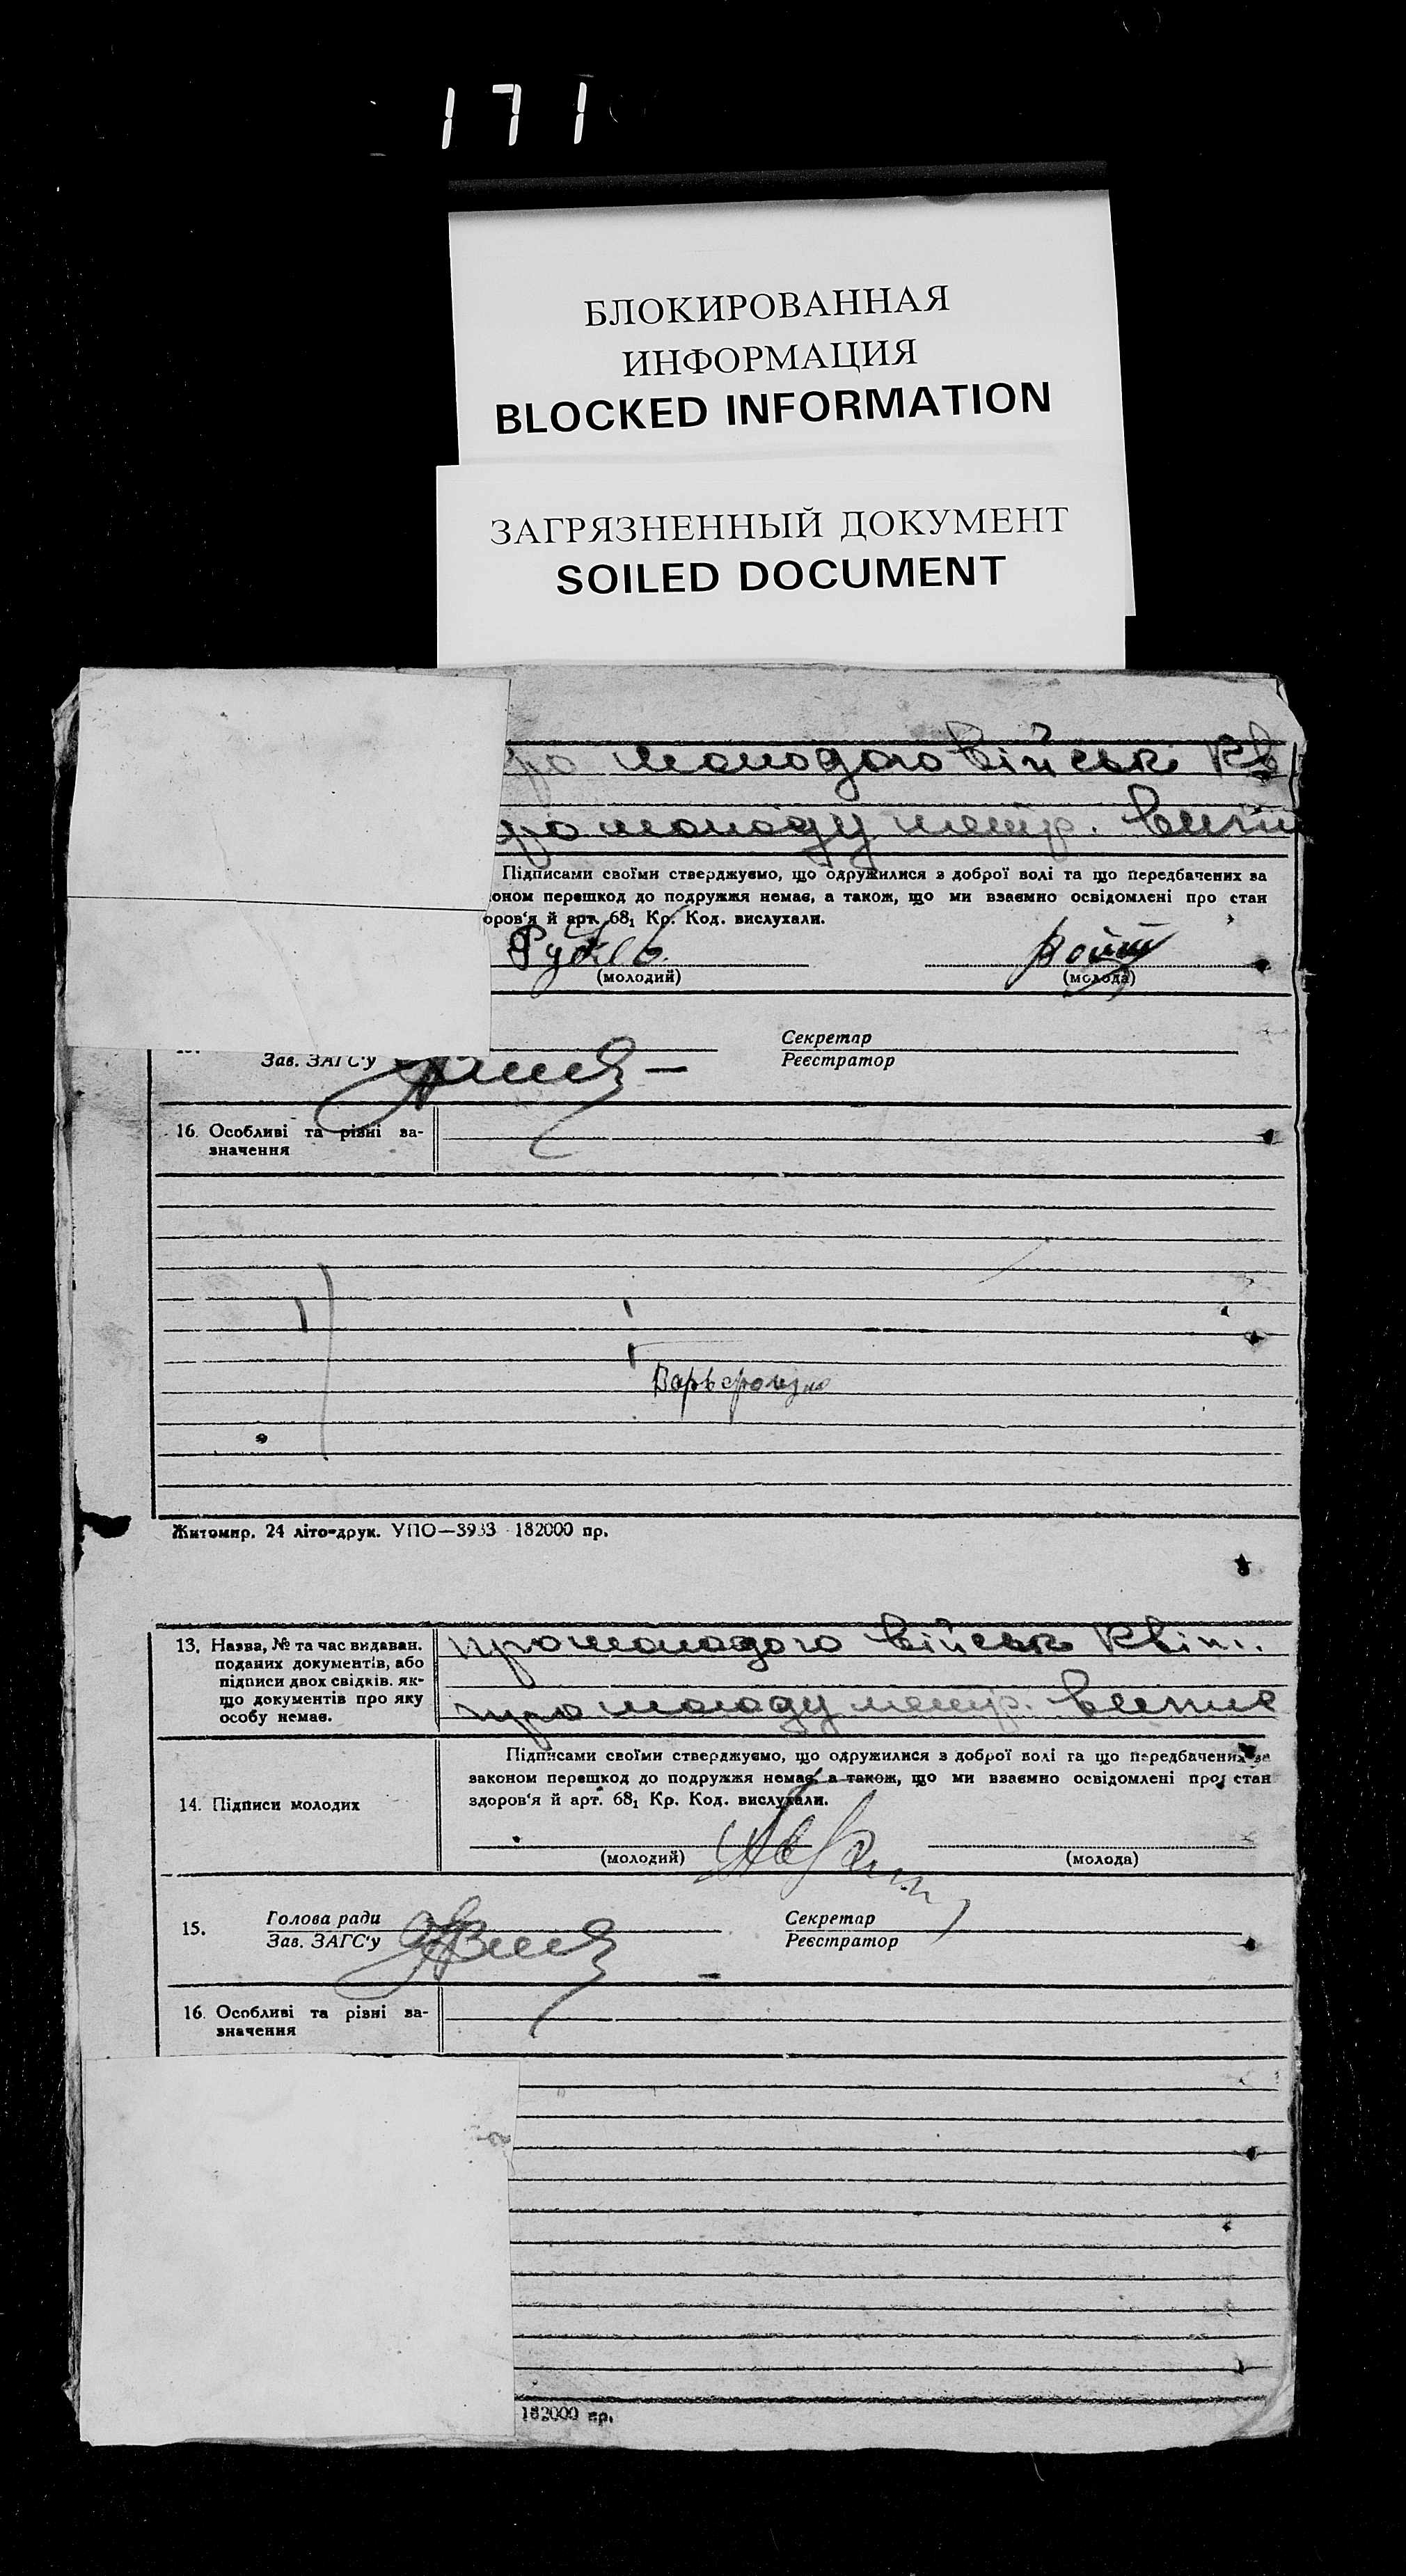 171
БЛОКИРОВАННАЯ
ИНФОРМАЦИЯ
BLOCKED INFORMATION
ЗАГРЯЗНЕННЫЙ ДОКУМЕНТ
SOILED DOCUMENT
молодого військ Кв
про молоду метр. витяг
Підписами своїми стверджуємо, що одружилися з доброї волі та що передбачених за
оном перешкод до подружжя немає, а також, що ми взаємно освідомлені про стан
оров'я й арт. 68₁ Кр. Код. вислухали.
(молодий) (молода)
Секретар
Зав. ЗАГС'у Реєстратор
16. Особливі та різні за-
значення
Житомир. 24 літо-друк. УПО—3933 182000 пр.
13. Назва, № та час видаван.
поданих документів, або
підписи двох свідків. як-
що документів про яку
особу немає.
про молодого військ Квит.
про молоду метр. витяг
Підписами своїми стверджуємо, що одружилися з доброї волі та що передбачених за
законом перешкод до подружжя немає, а також, що ми взаємно освідомлені про стан
здоров'я й арт. 68₁ Кр. Код. вислухали.
14. Підписи молодих
(молодий) (молода)
15. Голова ради Секретар
Зав. ЗАГС'у Реєстратор
16. Особливі та різні за-
значення
182000 пр.